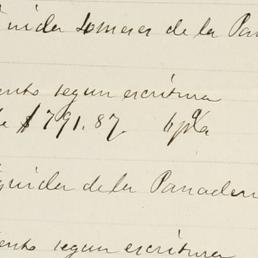 uida 4 meses de la Pan
ento segun escritura
$791.87. 6 p%a
guida de la Panader
ento segun escritura